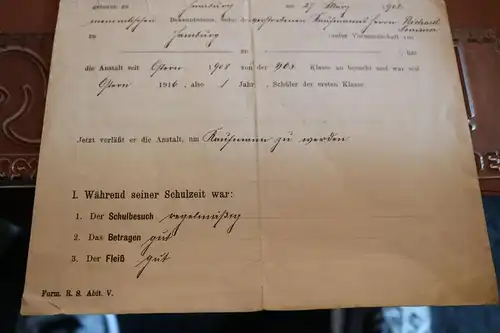 geboren zu Hamburg am 27 März
Bekenntnisses, des verstorbenen Kaufmanns Herrn Richard
zu Hamburg, unter Vormundschaft von
zu, hat
die Anstalt seit Ostern 1908 von der Klasse an besucht und war seit
Ostern 1916, also 1 Jahr, Schüler der ersten Klasse.
Jetzt verläßt er die Anstalt, um Kaufmann zu werden
I. Während seiner Schulzeit war:
1. Der Schulbesuch regelmäßig
2. Das Betragen gut
3. Der Fleiß gut
Form. R. S. Abit. V.